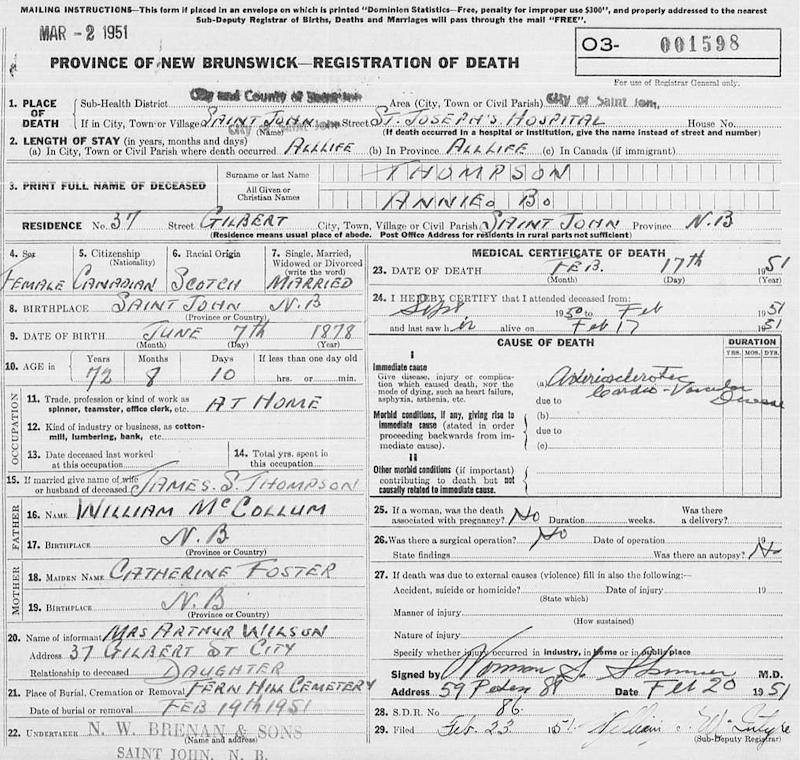 MAILING INSTRUCTIONS—This form if placed in an envelope on which is printed "Dominion Statistics—Free, penalty for improper use $300", and properly addressed to the nearest
Sub-Deputy Registrar of Births, Deaths and Marriages will pass through the mail "FREE".
MAR - 2 1951
03- 001598
PROVINCE OF NEW BRUNSWICK—REGISTRATION OF DEATH
For use of Registrar General only.
1. PLACE OF DEATH { Sub-Health District City and County of Saint John Area (City, Town or Civil Parish) City of Saint John,
If in City, Town or Village SAINT JOHN City of Saint John Street ST. JOSEPH'S HOSPITAL House No.
(Name) (If death occurred in a hospital or institution, give the name instead of street and number)
2. LENGTH OF STAY (in years, months and days)
(a) In City, Town or Civil Parish where death occurred ALLLIFE (b) In Province ALLLIFE (c) In Canada (if immigrant)
3. PRINT FULL NAME OF DECEASED { Surname or last Name THOMPSON
All Given or Christian Names ANNIE B.
RESIDENCE No. 37 Street GILBERT City, Town, Village or Civil Parish SAINT JOHN Province N.B
(Residence means usual place of abode. Post Office Address for residents in rural parts not sufficient)
4. Sex FEMALE
5. Citizenship (Nationality) CANADIAN
6. Racial Origin SCOTCH
7. Single, Married, Widowed or Divorced (write the word) MARRIED
8. BIRTHPLACE SAINT JOHN N.B
(Province or Country)
9. DATE OF BIRTH JUNE 7TH 1878
(Month) (Day) (Year)
10. AGE in { Years Months Days If less than one day old
72 8 10 hrs. or min.
OCCUPATION
11. Trade, profession or kind of work as spinner, teamster, office clerk, etc. AT HOME
12. Kind of industry or business, as cotton-mill, lumbering, bank, etc.
13. Date deceased last worked at this occupation
14. Total yrs. spent in this occupation
15. If married give name of wife or husband of deceased JAMES. S. THOMPSON
FATHER
16. NAME WILLIAM McCOLLUM
17. BIRTHPLACE N.B
(Province or Country)
MOTHER
18. MAIDEN NAME CATHERINE FOSTER
19. BIRTHPLACE N.B
(Province or Country)
20. Name of informant MRS ARTHUR WILSON
Address 37 GILBERT ST CITY
Relationship to deceased DAUGHTER
21. Place of Burial, Cremation or Removal FERN HILL CEMETERY
Date of burial or removal FEB 19TH 1951
22. UNDERTAKER N. W. BRENAN & SONS
(Name and address)
SAINT JOHN, N. B.
MEDICAL CERTIFICATE OF DEATH
23. DATE OF DEATH FEB. 17th 1951
(Month) (Day) (Year)
24. I HEREBY CERTIFY that I attended deceased from:
Sept 1950 to Feb 1951
and last saw her alive on Feb 17 1951
CAUSE OF DEATH
DURATION
YRS. MOS. DYS.
I
Immediate cause
Give disease, injury or complication which caused death, NOT the mode of dying, such as heart failure, asphyxia, asthenia, etc.
(a) Arteriosclerotic Cardio-Vascular Disease
due to
Morbid conditions, if any, giving rise to immediate cause (stated in order proceeding backwards from immediate cause).
(b)
due to
(c)
II
Other morbid conditions (if important) contributing to death but not causally related to immediate cause.
25. If a woman, was the death associated with pregnancy? No Duration weeks. Was there a delivery?
26. Was there a surgical operation? No Date of operation 19
State findings Was there an autopsy? No
27. If death was due to external causes (violence) fill in also the following:—
Accident, suicide or homicide? Date of injury 19
(State which)
Manner of injury
(How sustained)
Nature of injury
Specify whether injury occurred in industry, in home or in public place
Signed by Norman S. Skinner M.D.
Address 59 Date Feb 20 1951
28. S.D.R. No 86
29. Filed Feb. 23 1951 William
(Sub-Deputy Registrar)